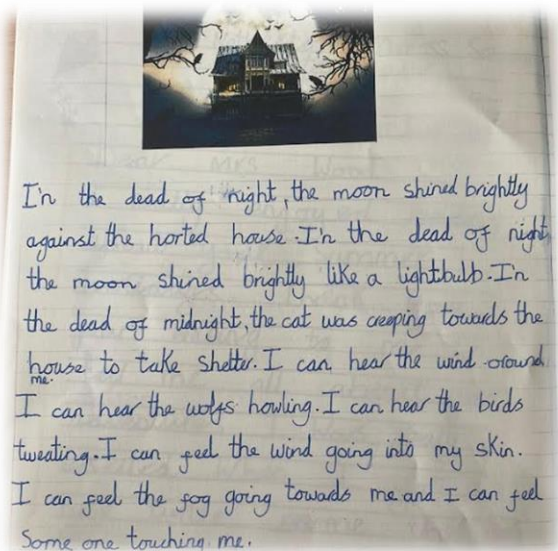 I'n the dead of night, the moon shined brightly
against the horted house. I'n the dead of night
the moon shined brightly like a lightbulb. I'n
the dead of midnight, the cat was creeping towards the
house to take shelter. I can hear the wind oround
me.
I can hear the wolfs howling. I can hear the birds
tweating. I can feel the wind going into my skin.
I can feel the fog going towards me and I can feel
Some one touching me.